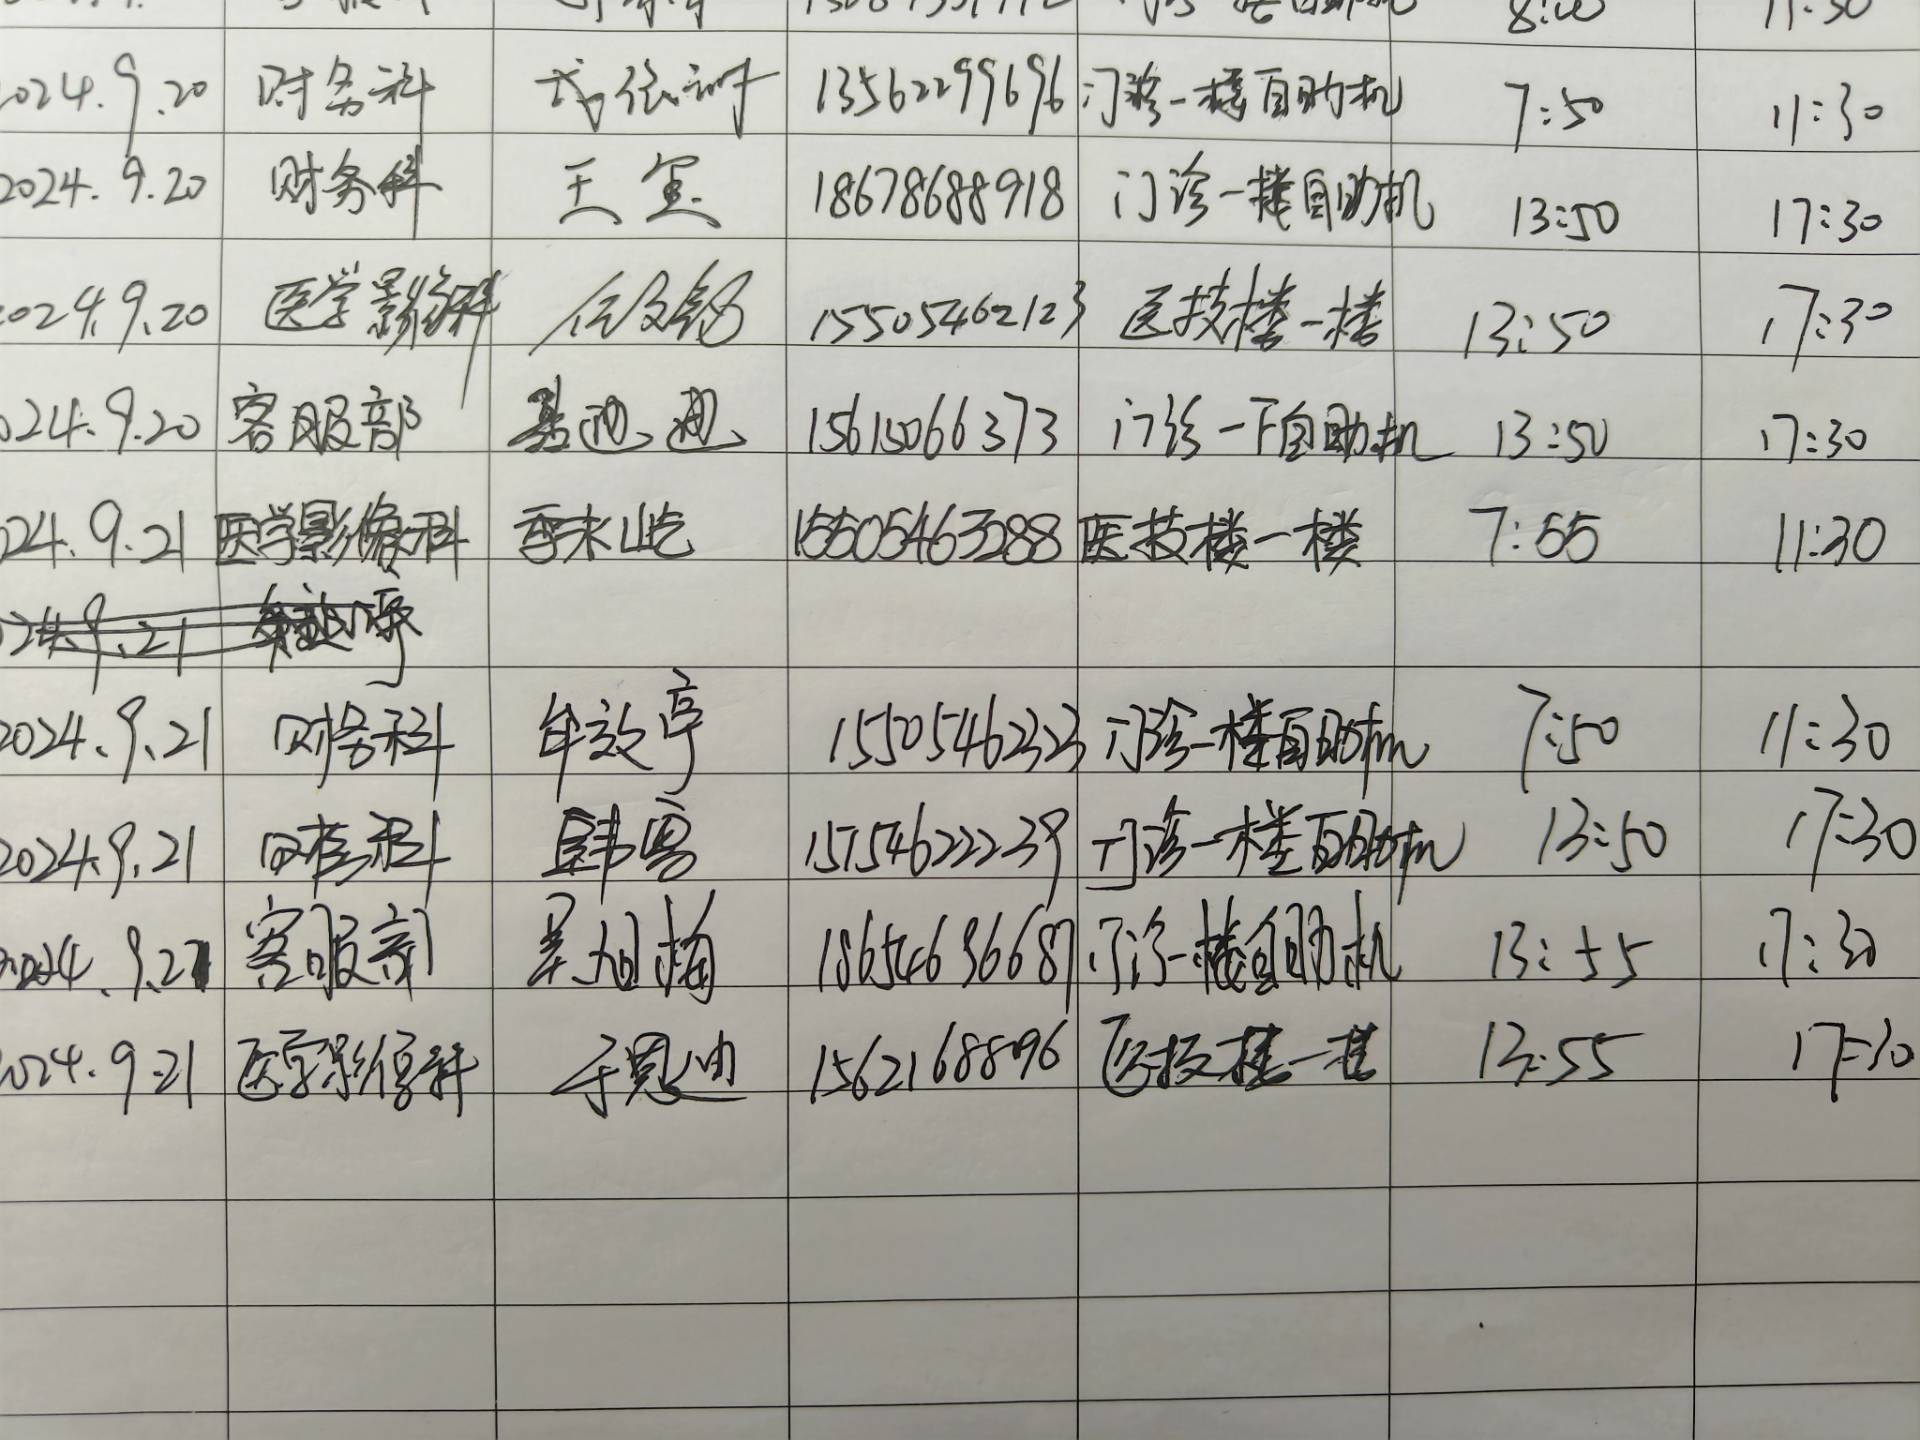 2024.9.20 财务科 13562299696 门诊一楼自助机 7:50 11:30
2024.9.20 财务科 王 18678688918 门诊一楼自助机 13:50 17:30
2024.9.20 医学影像科 15505462123 医技楼一楼 13:50 17:30
024.9.20 客服部 迪迪 15615066373 门诊一下自助机 13:50 17:30
024.9.21 医学影像科 季未屹 15505463288 医技楼一楼 7:55 11:30
024.9.21
2024.9.21 财务科 牟效亭 15505462323 门诊一楼自助机 7:50 11:30
2024.9.21 财务科 韩 15154622239 门诊一楼自助机 13:50 17:30
2024.9.21 客服部 旭梅 18654636687 门诊一楼自助机 13:55 17:30
2024.9.21 医学影像科 于恩迪 15621688896 医技楼一楼 13:55 17:30